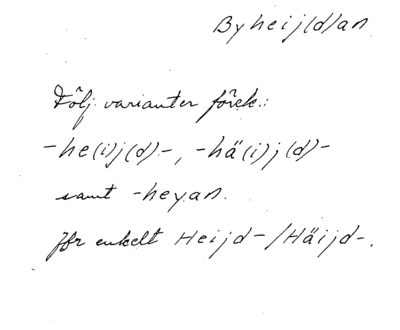 Byheij(d)an
Följ. varianter förek.:
-he(i)j(d)-, -hä(i)j(d)-
samt -heyan.
Jfr enkelt Heijd-/Häijd-.